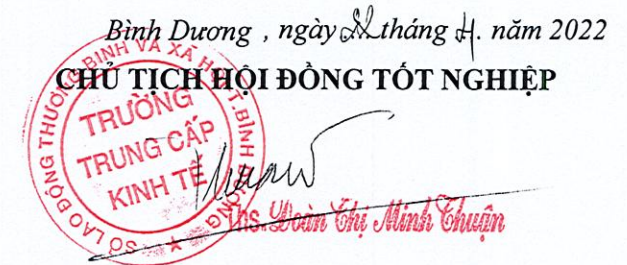 Bình Dương , ngày 22 tháng 4. năm 2022
CHỦ TỊCH HỘI ĐỒNG TỐT NGHIỆP
SỞ LAO ĐỘNG THƯƠNG BINH VÀ XÃ HỘI T.BÌNH DƯƠNG
TRƯỜNG
TRUNG CẤP
KINH TẾ
Ths. Đoàn Thị Minh Thuận